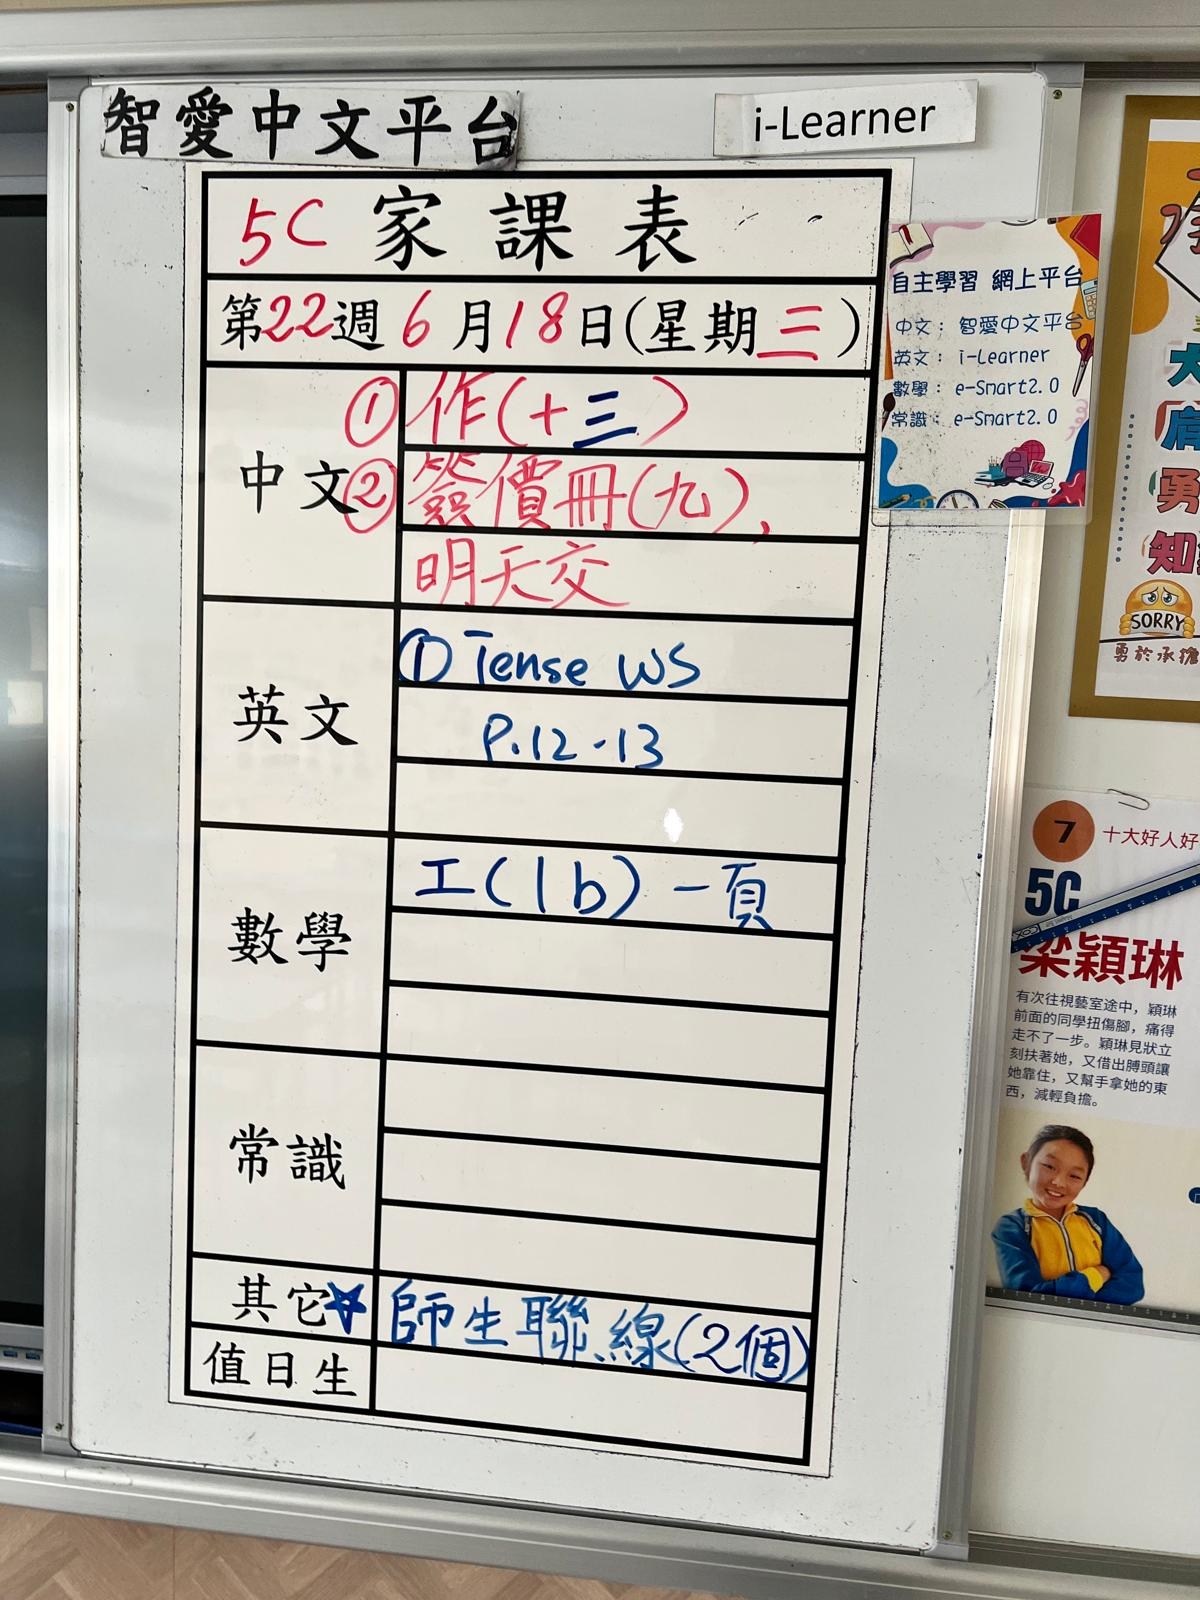 智愛中文平台
i-Learner
5C 家課表
第22週 6月18日(星期三)
中文
① 作(十三)
② 簽價冊(九)、
明天交
英文
① Tense WS
P.12-13
數學
工(1b) 一頁
常識
其它 師生聯線(2個)
值日生
自主學習 網上平台
中文：智愛中文平台
英文：i-Learner
數學：e-Smart2.0
常識：e-Smart2.0
SORRY
勇於承擔
7 十大好人好
5C
梁穎琳
有次往視藝室途中，穎琳
前面的同學扭傷腳，痛得
走不了一步。穎琳見狀立
刻扶著她，又借出膊頭讓
她靠住，又幫手拿她的東
西，減輕負擔。